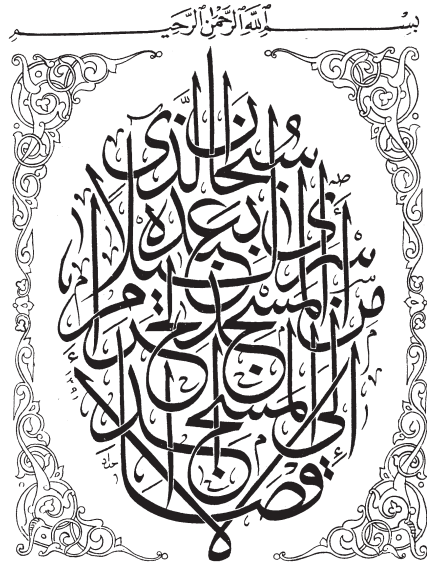 بِسْمِ ٱللَّهِ ٱلرَّحْمَٰنِ ٱلرَّحِيمِ
سبحان الذي
أسرى بعبده ليلا
من المسجد الحرام
إلى المسجد الا
قصا